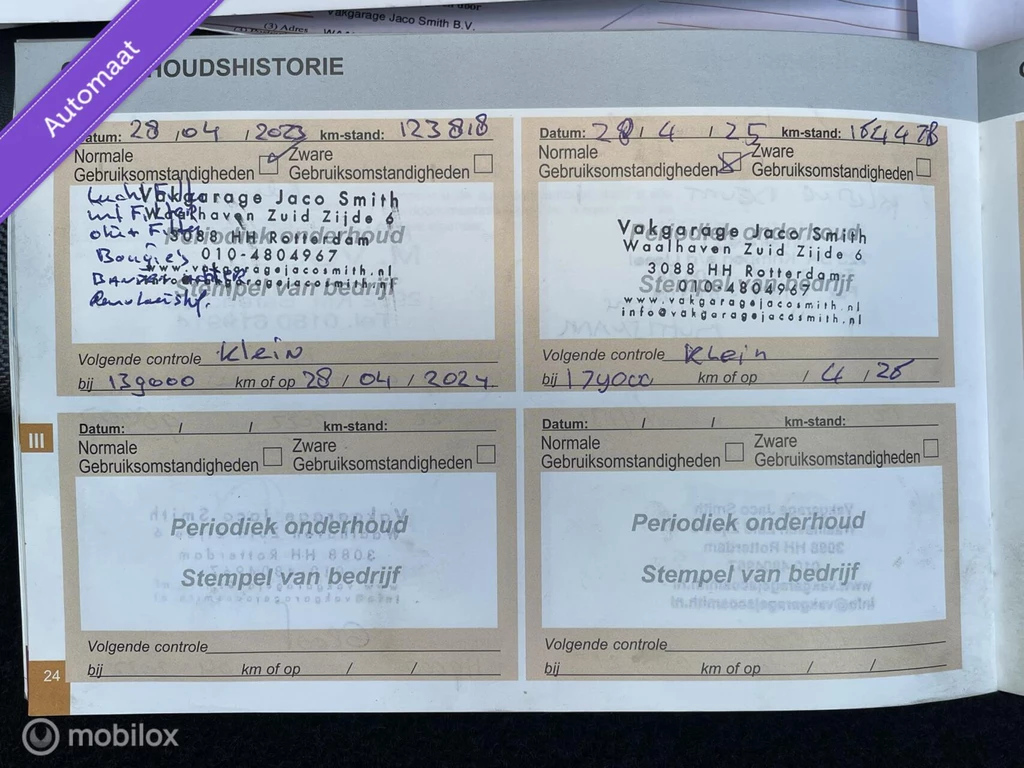 Vakgarage Jaco Smith B.V.
(3) Adres
Automaat
HOUDSHISTORIE
Datum: 28 / 04 / 2023 km-stand: 123818
Normale Gebruiksomstandigheden Zware Gebruiksomstandigheden
Vakgarage Jaco Smith
Waalhaven Zuid Zijde 6
3088 HH Rotterdam
Periodiek onderhoud
Bougies 010-4804967
www.vakgaragejacosmith.nl
Stempel van bedrijf
Volgende controle Klein
bij 139000 km of op 28 / 04 / 2024
Datum: 28 / 4 / 25 km-stand:
Normale Gebruiksomstandigheden Zware Gebruiksomstandigheden
Vakgarage Jaco Smith
Periodiek onderhoud
Waalhaven Zuid Zijde 6
3088 HH Rotterdam
Stempel van bedrijf
010-4804967
www.vakgaragejacosmith.nl
info@vakgaragejacosmith.nl
Volgende controle Klein
bij 179000 km of op / 4 / 26
III
Datum: / / km-stand:
Normale Gebruiksomstandigheden Zware Gebruiksomstandigheden
Periodiek onderhoud
Stempel van bedrijf
Volgende controle
bij km of op / /
Datum: / / km-stand:
Normale Gebruiksomstandigheden Zware Gebruiksomstandigheden
Periodiek onderhoud
Stempel van bedrijf
Volgende controle
bij km of op / /
24
mobilox